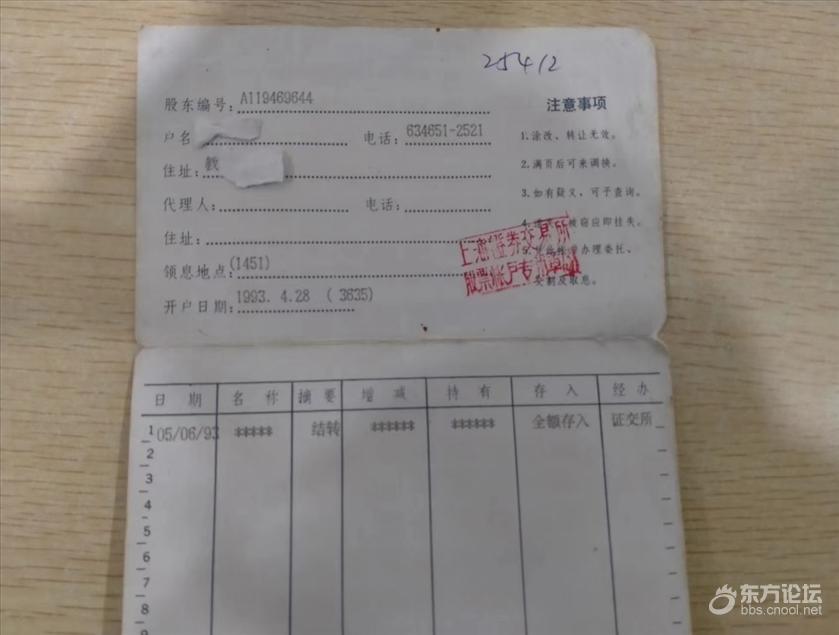 25412
股东编号:A119469644
户名
电话:634651-2521
住址:
代理人:
电话:
住址:
领息地点:(1451)
开户日期:1993. 4.28 ( 3635)
注意事项
1.涂改、转让无效。
2.满页后可来调换。
3.如有疑义,可予查询。
4. 被窃应即挂失。
5. 办理委托、
交割及取息。
上海证券交易所
股票帐户专用章
日 期 名 称 摘 要 增 减 持 有 存 入 经 办
1 05/06/93 ***** 结转 ****** ****** 全额存入 证交所
2
3
4
5
6
7
8
9
东方论坛
bbs.cnool.net